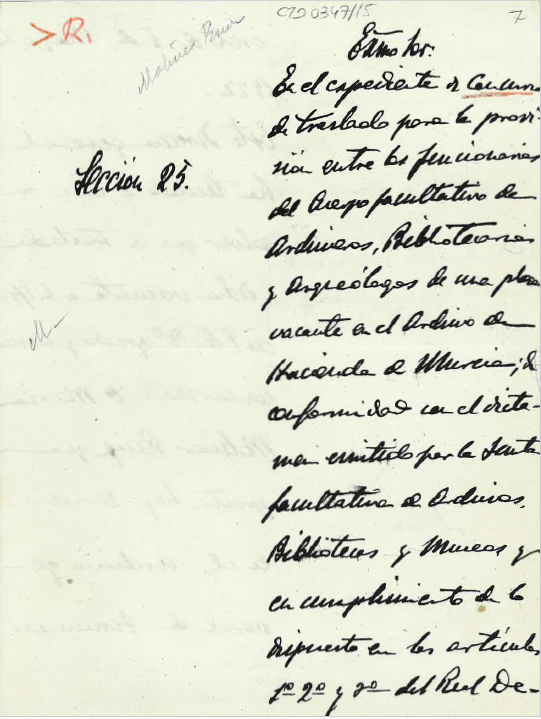 > R.
Molina
CAD0347/15
7
Exmo Sr:
En el expediente de Concurso
de traslado para la provi-
sión entre los funcionarios
del Cuerpo facultativo de
Archiveros, Bibliotecarios
y Arqueólogos de una plaza
vacante en el Archivo de
Hacienda de Murcia; de
conformidad con el dicta-
men emitido por la Junta
facultativa de Archivos,
Bibliotecas y Museos y
en cumplimiento de lo
dispuesto en los artículos
1º 2º y 3º del Real De-
Sección 25.
M-